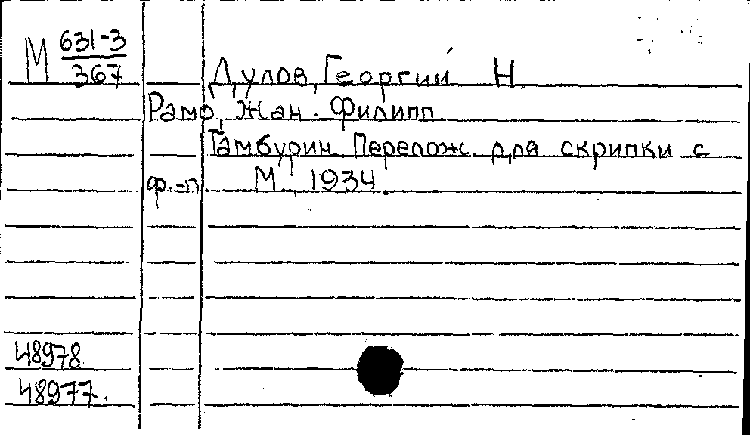 М 631-3
367
Дулов, Георгий Н
Рамо, Жан-Филипп
Тамбурин. Перелож. для скрипки с
ф.-п М., 1934.
48978
48977.